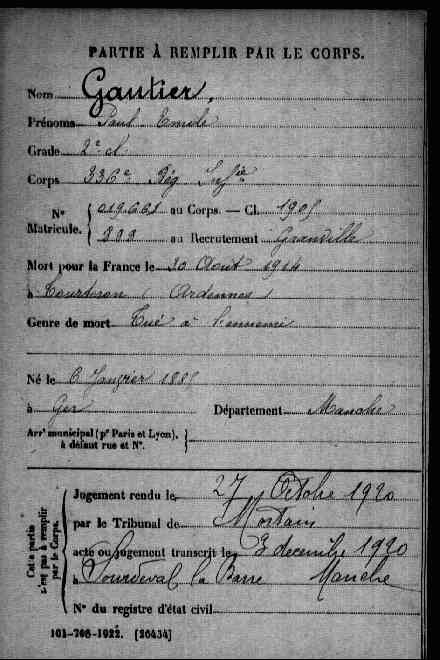 PARTIE À REMPLIR PAR LE CORPS.
Nom Gautier,
Prénoms Paul Emile
Grade 2e cl
Corps 336e Rég Infie
No 019661 au Corps. — Cl. 1905
Matricule. au Recrutement Granville
Mort pour la France le 30 Août 1914
à Tourteron (Ardennes)
Genre de mort Tué à l'ennemi
Né le 6 Janvier 1885
à Ger Département Manche
Arrt municipal (pr Paris et Lyon),
à défaut rue et No.
Cette partie
n'est pas à remplir
par le Corps.
Jugement rendu le 27 Octobre 1920
par le Tribunal de Mortain
acte ou jugement transcrit le 3 decembre 1920
à Sourdeval la Barre Manche
No du registre d'état civil
101-708-1922. [26434]